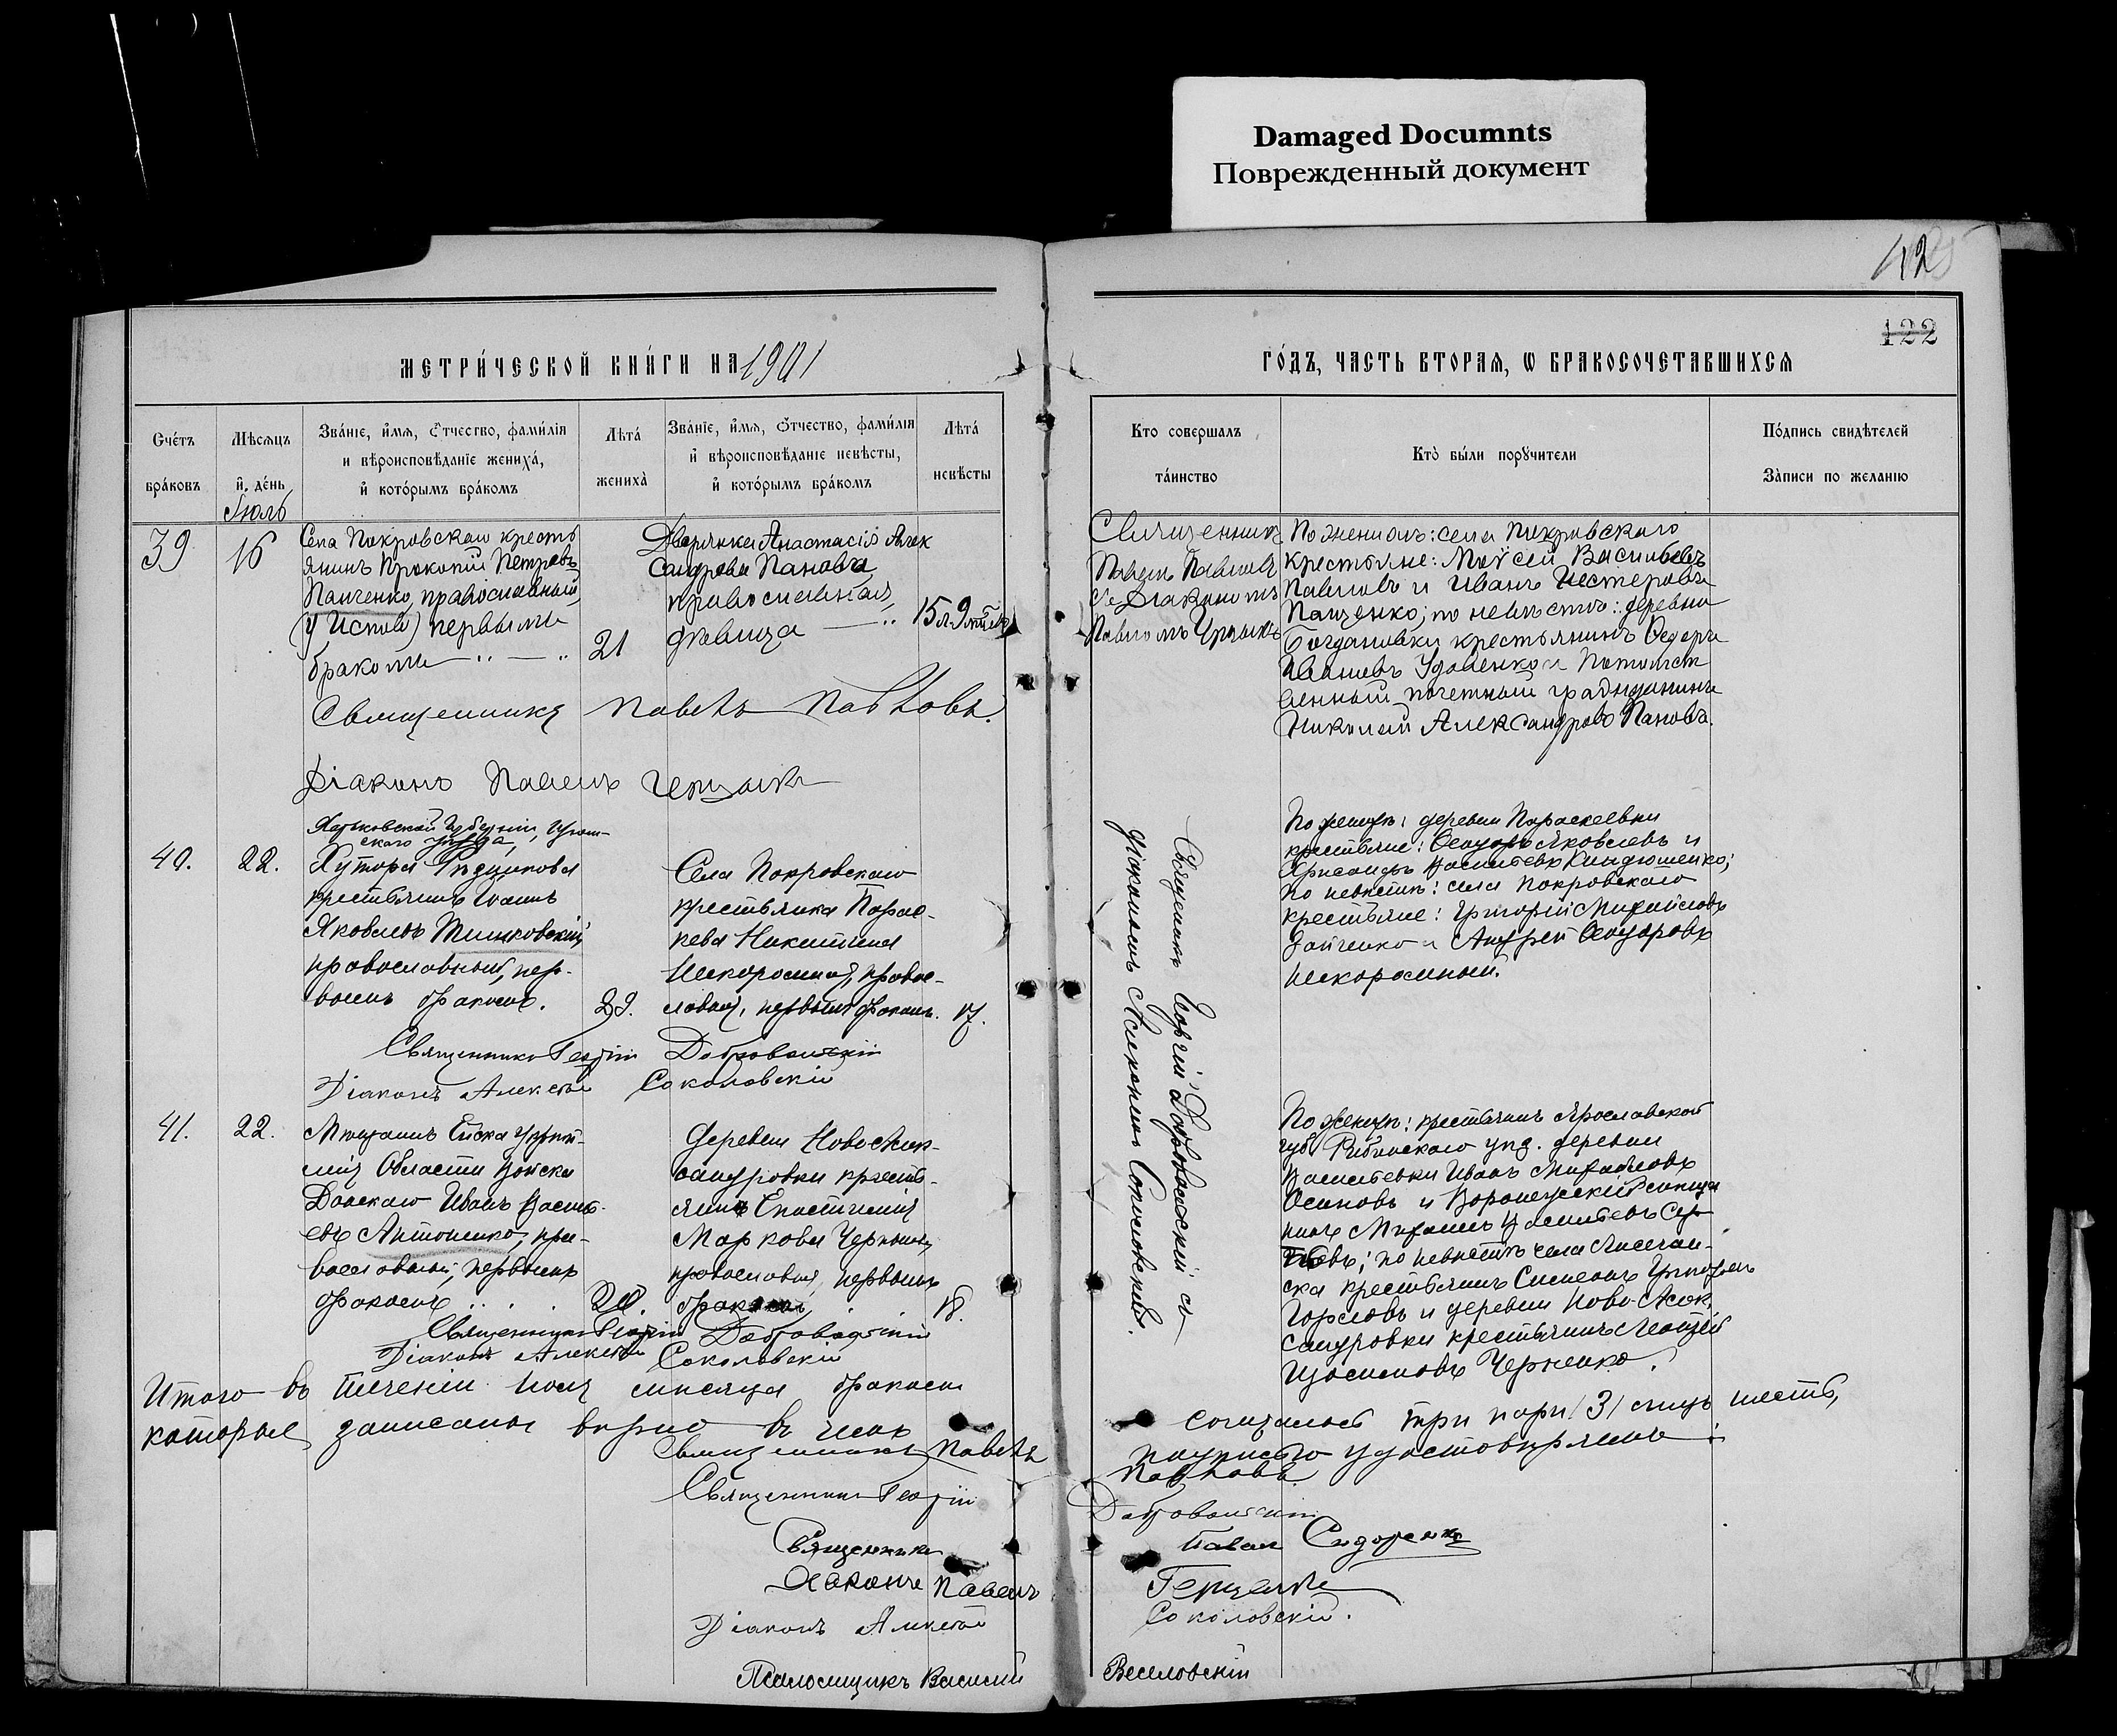 Damaged Documnts
Поврежденный документ
112
122
МЕТРИ́ЧЕСКОЙ КНИ́ГИ НА 1901
ГО́ДЪ, ЧАСТЬ ВТОРАѦ, Ѡ БРАКОСОЧЕТАВШИХСѦ
Сче́тъ бра́ковъ
Мѣсѧцъ и҆ де́нь
Зва́нїе, и҆́мѧ, ѻ҆́тчество, фами́лїѧ и вѣроисповѣ́данїе жениха̀, и҆ кото́рымъ бра́комъ
Лѣта́ жениха̀
Зва́нїе, и҆́мѧ, ѻ҆́тчество, фами́лїѧ и҆ вѣроисповѣ́данїе невѣ́сты, и҆ кото́рымъ бра́комъ
Лѣта́ невѣ́сты
Кто соверша́лъ та́инство
Кто̀ бы́ли порꙋчи́тели
По́дпись свидѣ́телей За́писи по жела́нїю
Іюль
39
16
Села Покровскаго кресть
янинъ Прокопій Петровъ
Панченко, православный,
первымъ
бракомъ
21
Дворянка Анастасія Алек
сандрова Панова
православная,
дѣвица
15 л. 9
Священникъ
Павелъ Павловъ
съ Діакономъ
Павломъ
По женихѣ: села Покровскаго
крестьяне: Моѵсей Васильевъ
Павловъ и Иванъ Нестеровъ
Панченко; по невѣстѣ: деревни
Богдановки крестьянинъ Ѳедоръ
Ивановъ Удовенко и Потомст
венный почетный гражданинъ
Николай Александровъ Пановъ.
Священникъ Павелъ Павловъ.
Діаконъ Павелъ
40.
22.
Харьковской Губерніи, Изюм-
скаго уѣзда,
Хутора
крестьянинъ Іоаннъ
Яковлевъ
православный, пер-
вымъ бракомъ.
Села Покровскаго
крестьянка Парас-
кева Никитина
Шкоромная, правос-
лавная, первымъ бракомъ.
17.
Священникъ Георгій
діакономъ Алексіемъ Соколовскимъ.
По женихѣ: деревни Параскеевки
крестьяне: Ѳеодоръ Яковлевъ и
Васильевъ
по невѣстѣ: села Покровскаго
крестьяне: Григорій Михайловъ
Зайченко и Андрей Ѳеодоровъ
Шкоромный.
Священникъ Георгій
Діаконъ Алексій Соколовскій
41.
22.
Мѣщанинъ
Области Войска
Донскаго Иванъ Василь-
евъ Антоненко, пра-
вославный, первымъ
бракомъ
Деревни Новоалек-
сандровки кресть-
янка
Маркова
православная, первымъ
бракомъ
18.
По женихѣ: крестьянинъ Ярославской
губ. Рыбинскаго уѣзд. деревни
Васильевки Иванъ Михайловъ
Осиповъ и Воронежскій
Михаилъ Васильевъ
по невѣстѣ села Лисичан-
ска крестьянинъ Симеонъ
Горловъ и деревни Ново-Алек-
сандровки крестьянинъ
Черненко.
Священникъ Георгій
Діаконъ Алексій Соколовскій
Итого въ теченіи іюля мѣсяца бракомъ сочеталось три пары (3) лицъ шесть,
которые записаны вѣрно въ чемъ подписью удостовѣряемъ:
Священникъ Павелъ Павловъ
Священникъ Георгій
Священникъ Павелъ Сидоренко
Діаконъ Павелъ
Діаконъ Алексій Соколовскій.
Псаломщикъ Василій Веселовскій